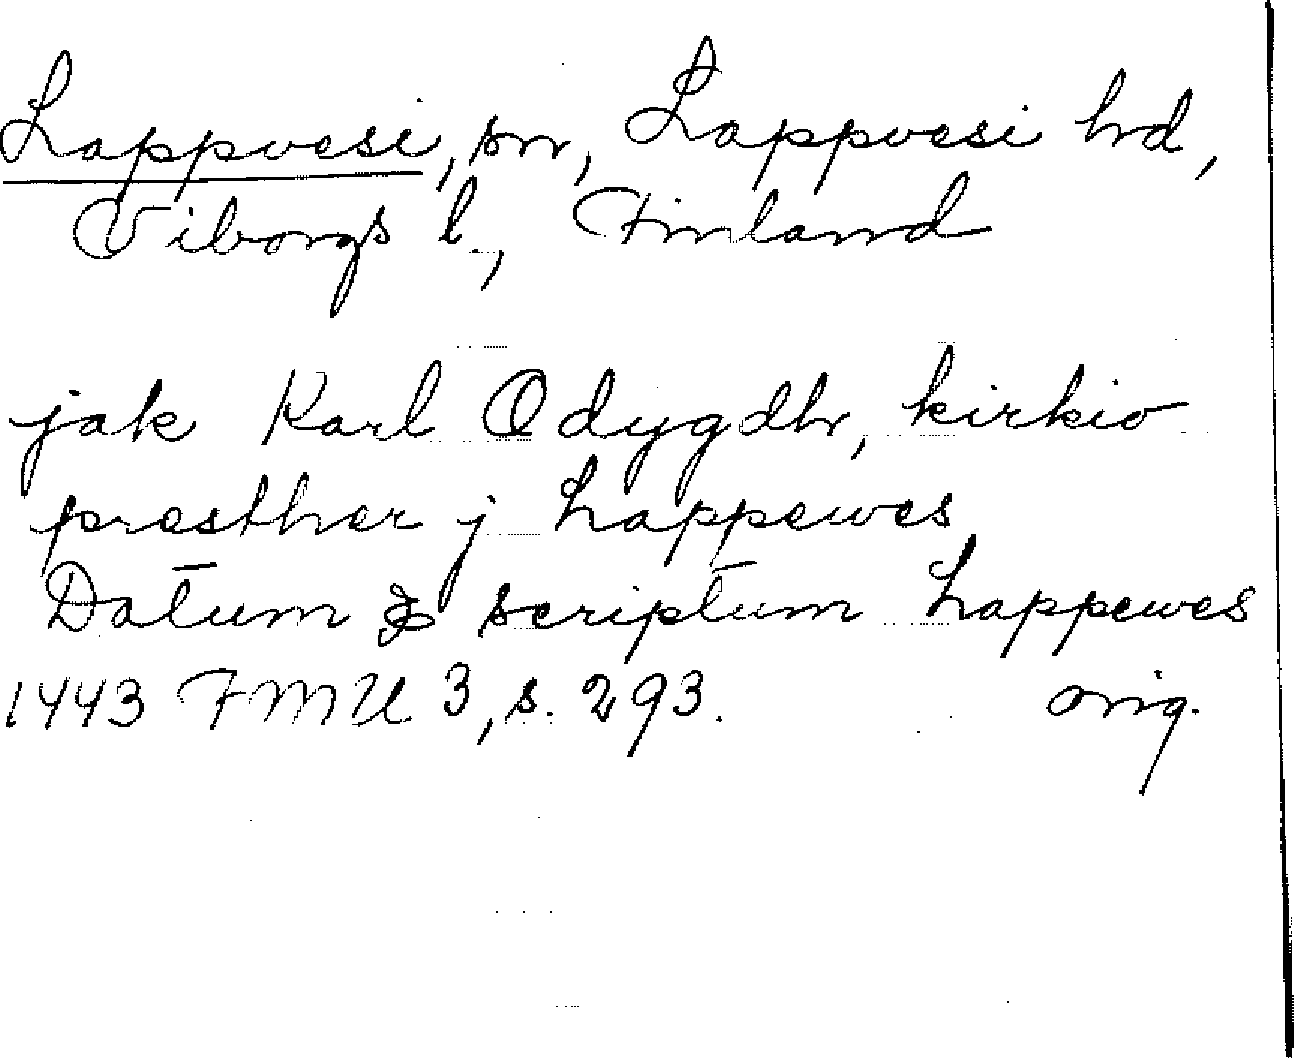 Lappvesi, sn, Lappvesi hd,
Viborgs l., Finland
jak Karl Odygdhr, kirkio
præsther j Lappewes
Datum & scriptum Lappewes
1443 FMU 3, s. 293. orig.